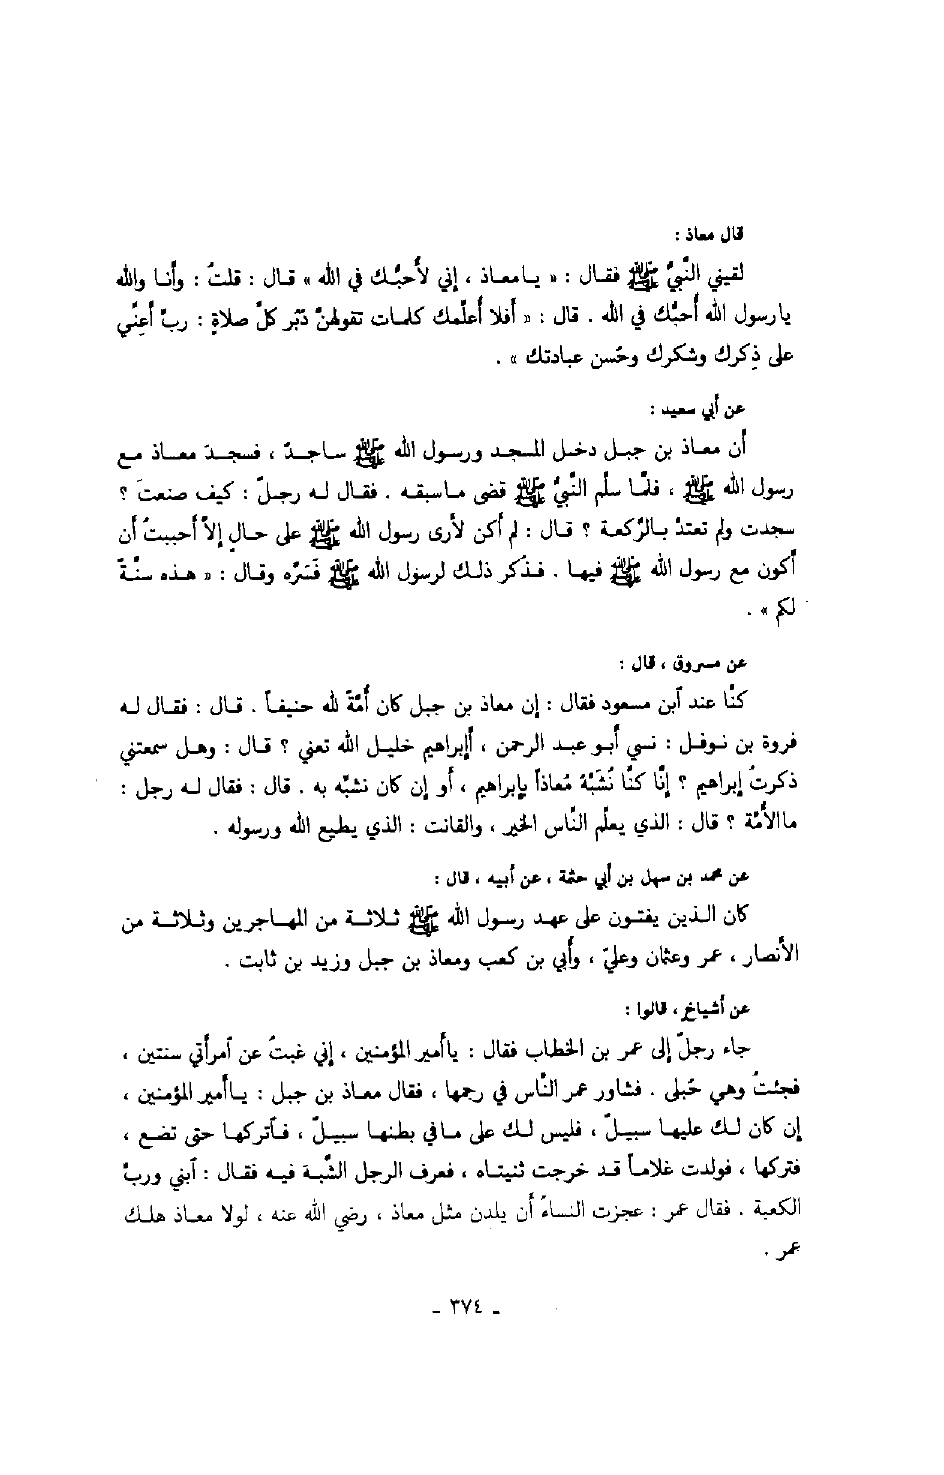 قال معاذ :
لقيني النَّبيُّ ﷺ فقال : « يامعاذ ، إني لأُحبُّك في الله » قال : قلتُ : وأنا والله
يارسول الله أُحبُّك في الله . قال : « أفلا أعلّمك كلمات تقولهنّ دُبَر كلِّ صلاةٍ : ربِّ أعِنِّي
على ذِكرك وشكرك وحُسن عبادتك » .
عن أبي سعيد :
أن معاذ بن جبل دخل المسجد ورسول الله ﷺ ساجدٌ ، فسجدَ معاذ مع
رسول الله ﷺ ، فلمّا سلَّم النَّبيُّ ﷺ قضى ماسبقه . فقال له رجلٌ : كيف صنعتَ ؟
سجدت ولم تعتدَّ بالرَّكعة ؟ قال : لم أكن لأرى رسول الله ﷺ على حالٍ إلاّ أحببتُ أن
أكون مع رسول الله ﷺ فيها . فذكر ذلك لرسول الله ﷺ فَسَرَّه وقال : « هذه سنَّةٌ
لكم » .
عن مسروق ، قال :
كنَّا عند ٱبن مسعود فقال : إن معاذ بن جبل كان أُمَّةً لله حنيفاً . قال : فقال له
فروة بن نوفل : نسي أبو عبد الرحمن ، أإبراهيم خليل الله تعني ؟ قال : وهل سمعتني
ذكرتُ إبراهيم ؟ إنَّا كنَّا نُشَبِّهُ مُعاذاً بإبراهيم ، أو إن كان نشبِّه به . قال : فقال له رجل :
ماالأُمَّة ؟ قال : الذي يعلِّم النَّاس الخير ، والقانت : الذي يطيع الله ورسوله .
عن محمد بن سهل بن أبي حثمة ، عن أبيه ، قال :
كان الذين يفتون على عهد رسول الله ﷺ ثلاثة من المهاجرين وثلاثة من
الأنصار ، عمر وعثمان وعليّ ، وأُبي بن كعب ومعاذ بن جبل وزيد بن ثابت .
عن أشياخ ، قالوا :
جاء رجلٌ إلى عمر بن الخطاب فقال : ياأمير المؤمنين ، إني غبتُ عن ٱمرأتي سنتين ،
فجئتُ وهي حُبلى . فشاور عمر النَّاس في رجمها ، فقال معاذ بن جبل : ياأمير المؤمنين ،
إن كان لك عليها سبيلٌ ، فليس لك على مافي بطنها سبيلٌ ، فٱتركها حتى تضع ،
فتركها ، فولدت غلاماً قد خرجت ثنيتاه ، فعرف الرجل الشَّبة فيه فقال : ٱبني وربِّ
الكعبة . فقال عمر : عجزت النساءُ أن يلدن مثل معاذ ، رضي الله عنه ، لولا معاذ هلك
عمر .
ـ ٣٧٤ ـ